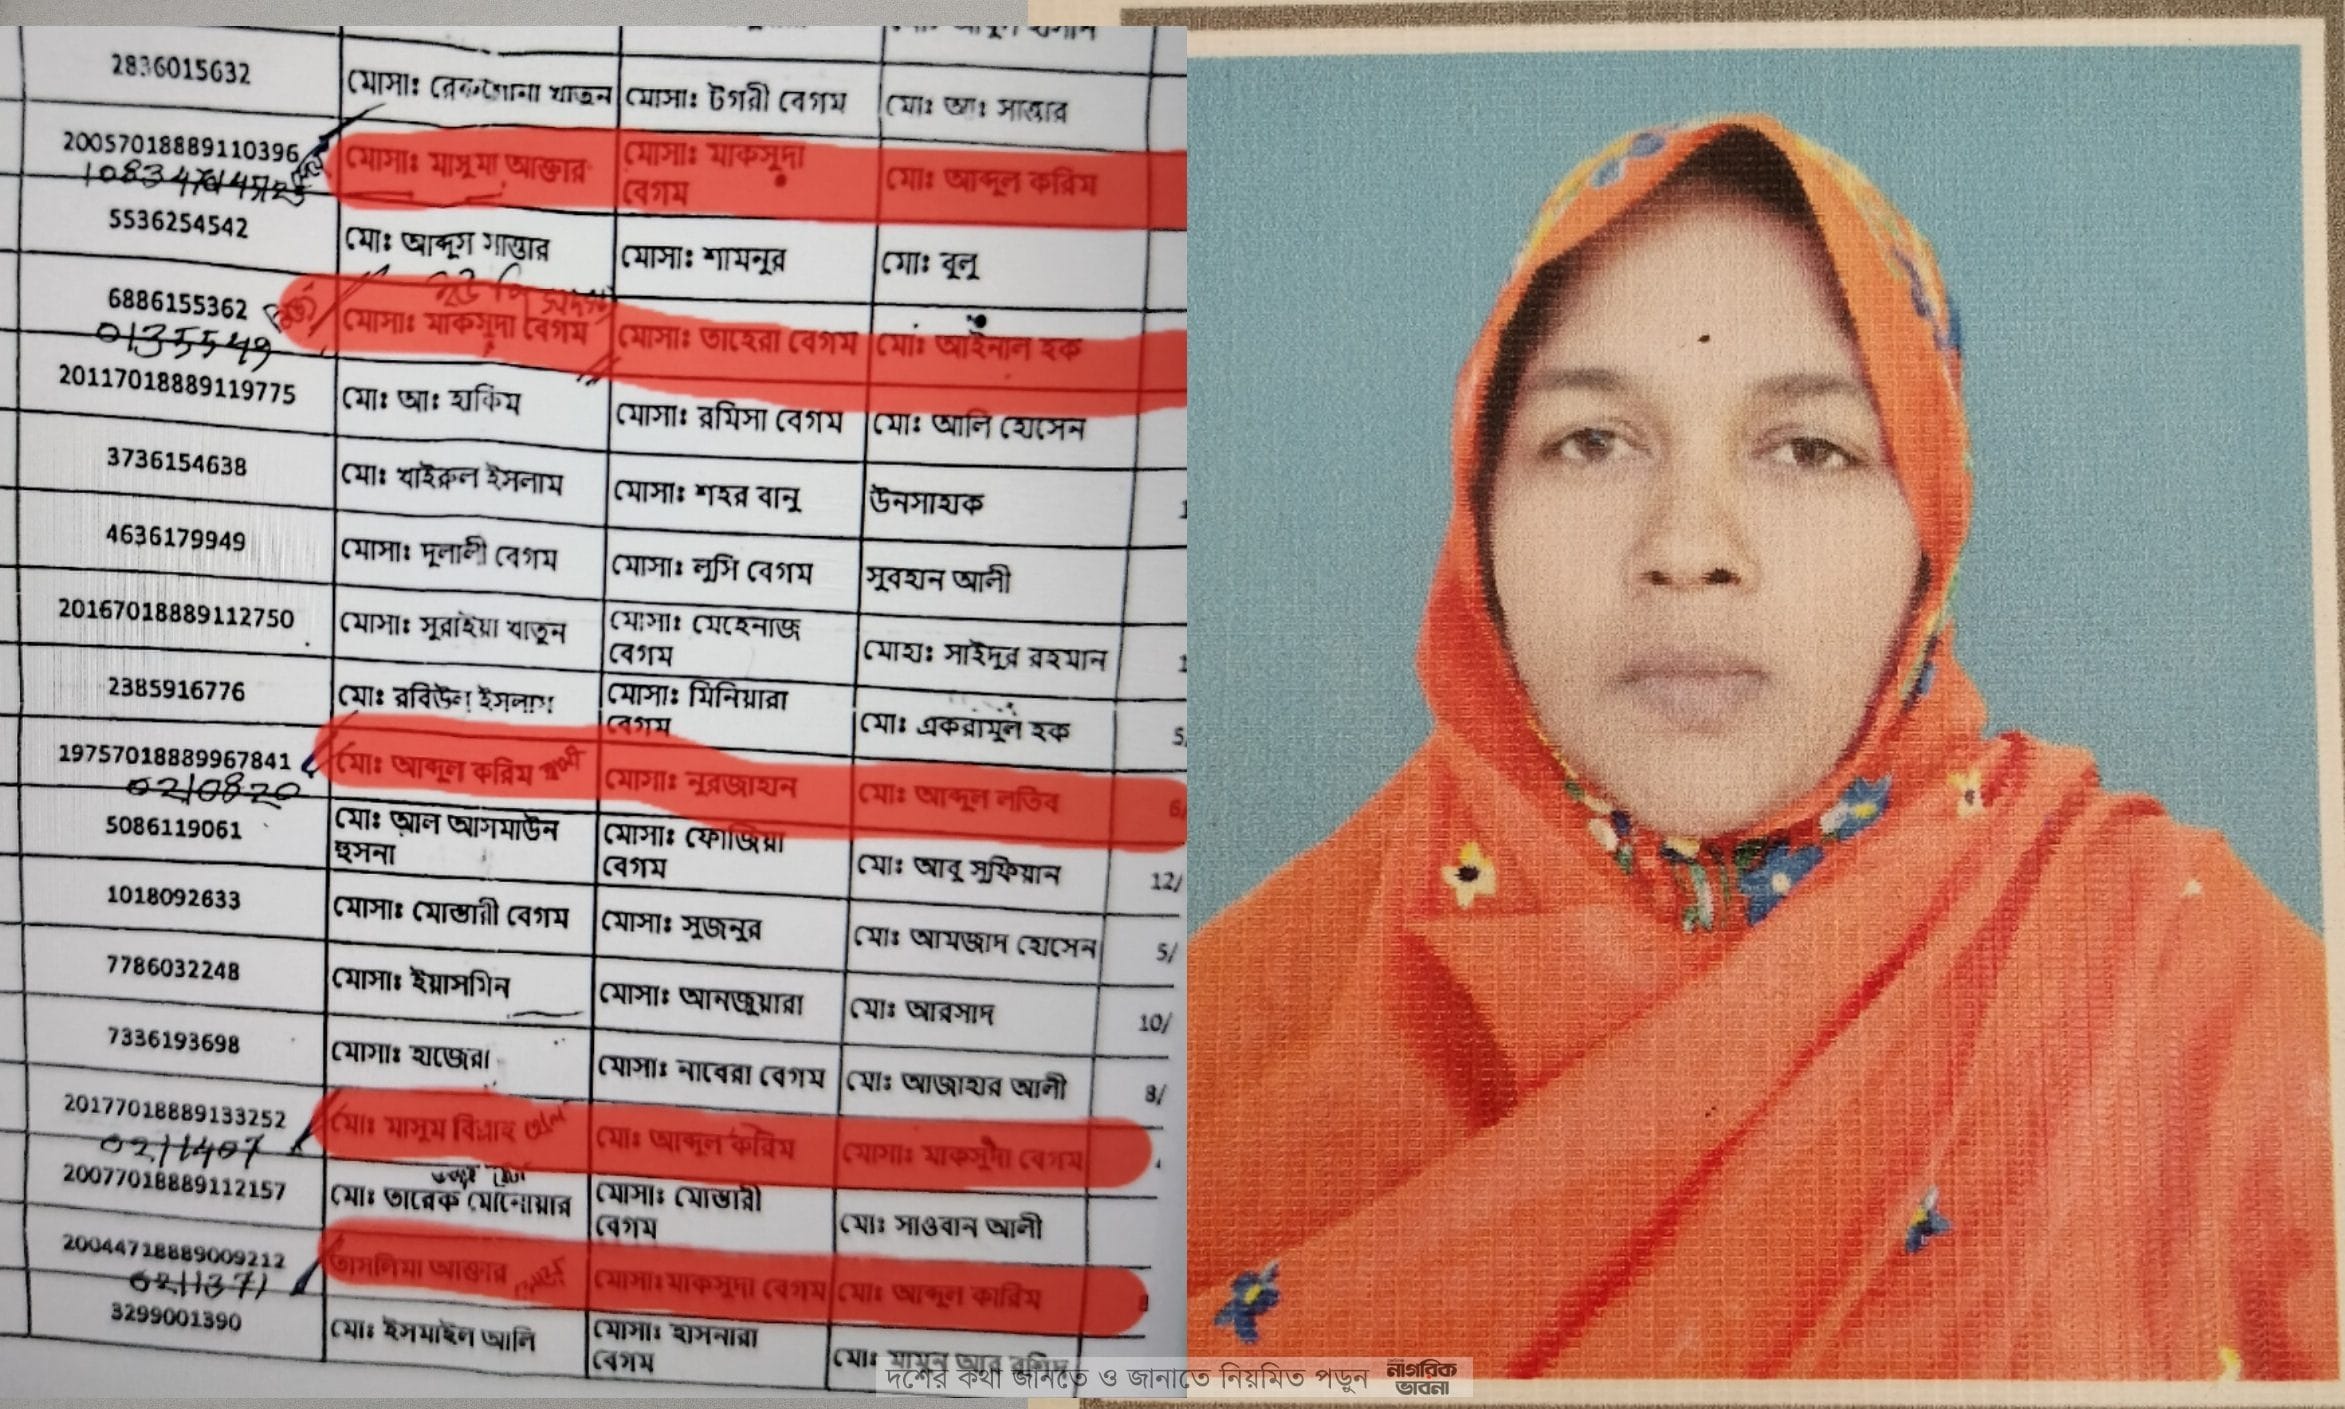 2836015632 মোসাঃ রেকসোনা খাতুন মোসাঃ টগরী বেগম মোঃ আঃ সাত্তার
20057018889110396 মোসাঃ মাসুমা আক্তার মোসাঃ মাকসুদা বেগম মোঃ আব্দুল করিম
5536254542 মোঃ আব্দুস সাত্তার মোসাঃ শামনুর মোঃ বুলু
6886155362 মোসাঃ মাকসুদা বেগম মোসাঃ তাহেরা বেগম মোঃ আইনাল হক
0135549
20117018889119775 মোঃ আঃ হাকিম মোসাঃ রমিসা বেগম মোঃ আলি হোসেন
3736154638 মোঃ খাইরুল ইসলাম মোসাঃ শহর বানু উনসাহাক
4636179949 মোসাঃ দুলালী বেগম মোসাঃ লুসি বেগম সুবহান আলী
20167018889112750 মোসাঃ সুরাইয়া খাতুন মোসাঃ মেহেনাজ বেগম মোহাঃ সাইদুর রহমান
2385916776 মোঃ রবিউল ইসলাম মোসাঃ মিনিয়ারা বেগম মোঃ একরামুল হক
19757018889967841 মোঃ আব্দুল করিম মোসাঃ নুরজাহান মোঃ আব্দুল লতিব
0210820
5086119061 মোঃ আল আসমাউন হুসনা মোসাঃ ফোজিয়া বেগম মোঃ আবু সুফিয়ান 12/
1018092633 মোসাঃ মোস্তারী বেগম মোসাঃ সুজনুর মোঃ আমজাদ হোসেন 5/
7786032248 মোসাঃ ইয়াসমিন মোসাঃ আনজুয়ারা মোঃ আরসাদ 10/
7336193698 মোসাঃ হাজেরা মোসাঃ নাবেরা বেগম মোঃ আজাহার আলী 8/
20177018889133252 মোঃ মাসুম বিল্লাহ মোঃ আব্দুল করিম মোসাঃ মাকসুদা বেগম
0211407
20077018889112157 মোঃ তারেক মোনোয়ার মোসাঃ মোস্তারী বেগম মোঃ সাওবান আলী
20044718889009212 তাসলিমা আক্তার মোসাঃ মাকসুদা বেগম মোঃ আব্দুল কারিম
0211371
3299001390 মোঃ ইসমাইল আলি মোসাঃ হাসনারা বেগম মোঃ মামুন আর রশিদ
দশের কথা জানতে ও জানাতে নিয়মিত পড়ুন নাগরিক ভাবনা